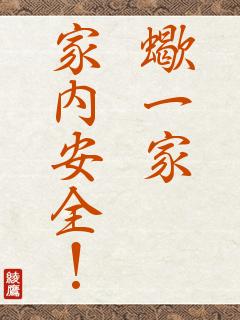 蠍一家
家内安全！
綾鷹